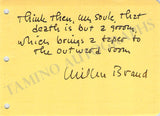 Think then, my soul, that
death is but a groom,
which brings a taper to
the outward room
Millen Brand
TAMINO AUTOGRAPHS